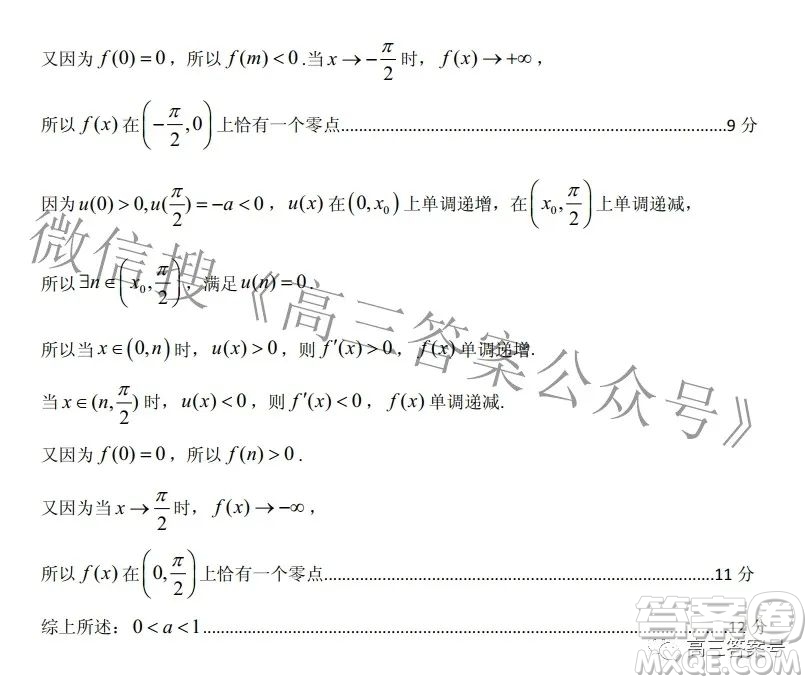 又因为 f(0)=0，所以 f(m)<0.当 x→-π/2 时，f(x)→+∞，
所以 f(x) 在(-π/2,0)上恰有一个零点..........................................................................................9 分
因为u(0)>0,u(π/2)=-a<0，u(x) 在(0,x₀)上单调递增，在(x₀,π/2)上单调递减，
所以∃n∈(x₀,π/2)，满足u(n)=0.
所以当 x∈(0,n) 时，u(x)>0，则 f′(x)>0，f(x) 单调递增.
当 x∈(n,π/2) 时，u(x)<0，则 f′(x)<0，f(x) 单调递减.
又因为 f(0)=0，所以 f(n)>0.
又因为当 x→π/2 时，f(x)→-∞，
所以 f(x) 在(0,π/2)上恰有一个零点..........................................................................................11 分
综上所述：0<a<1..........................................................................................12 分
微信搜《高三答案公众号》
答案圈
高三答案号
MXQE.COM